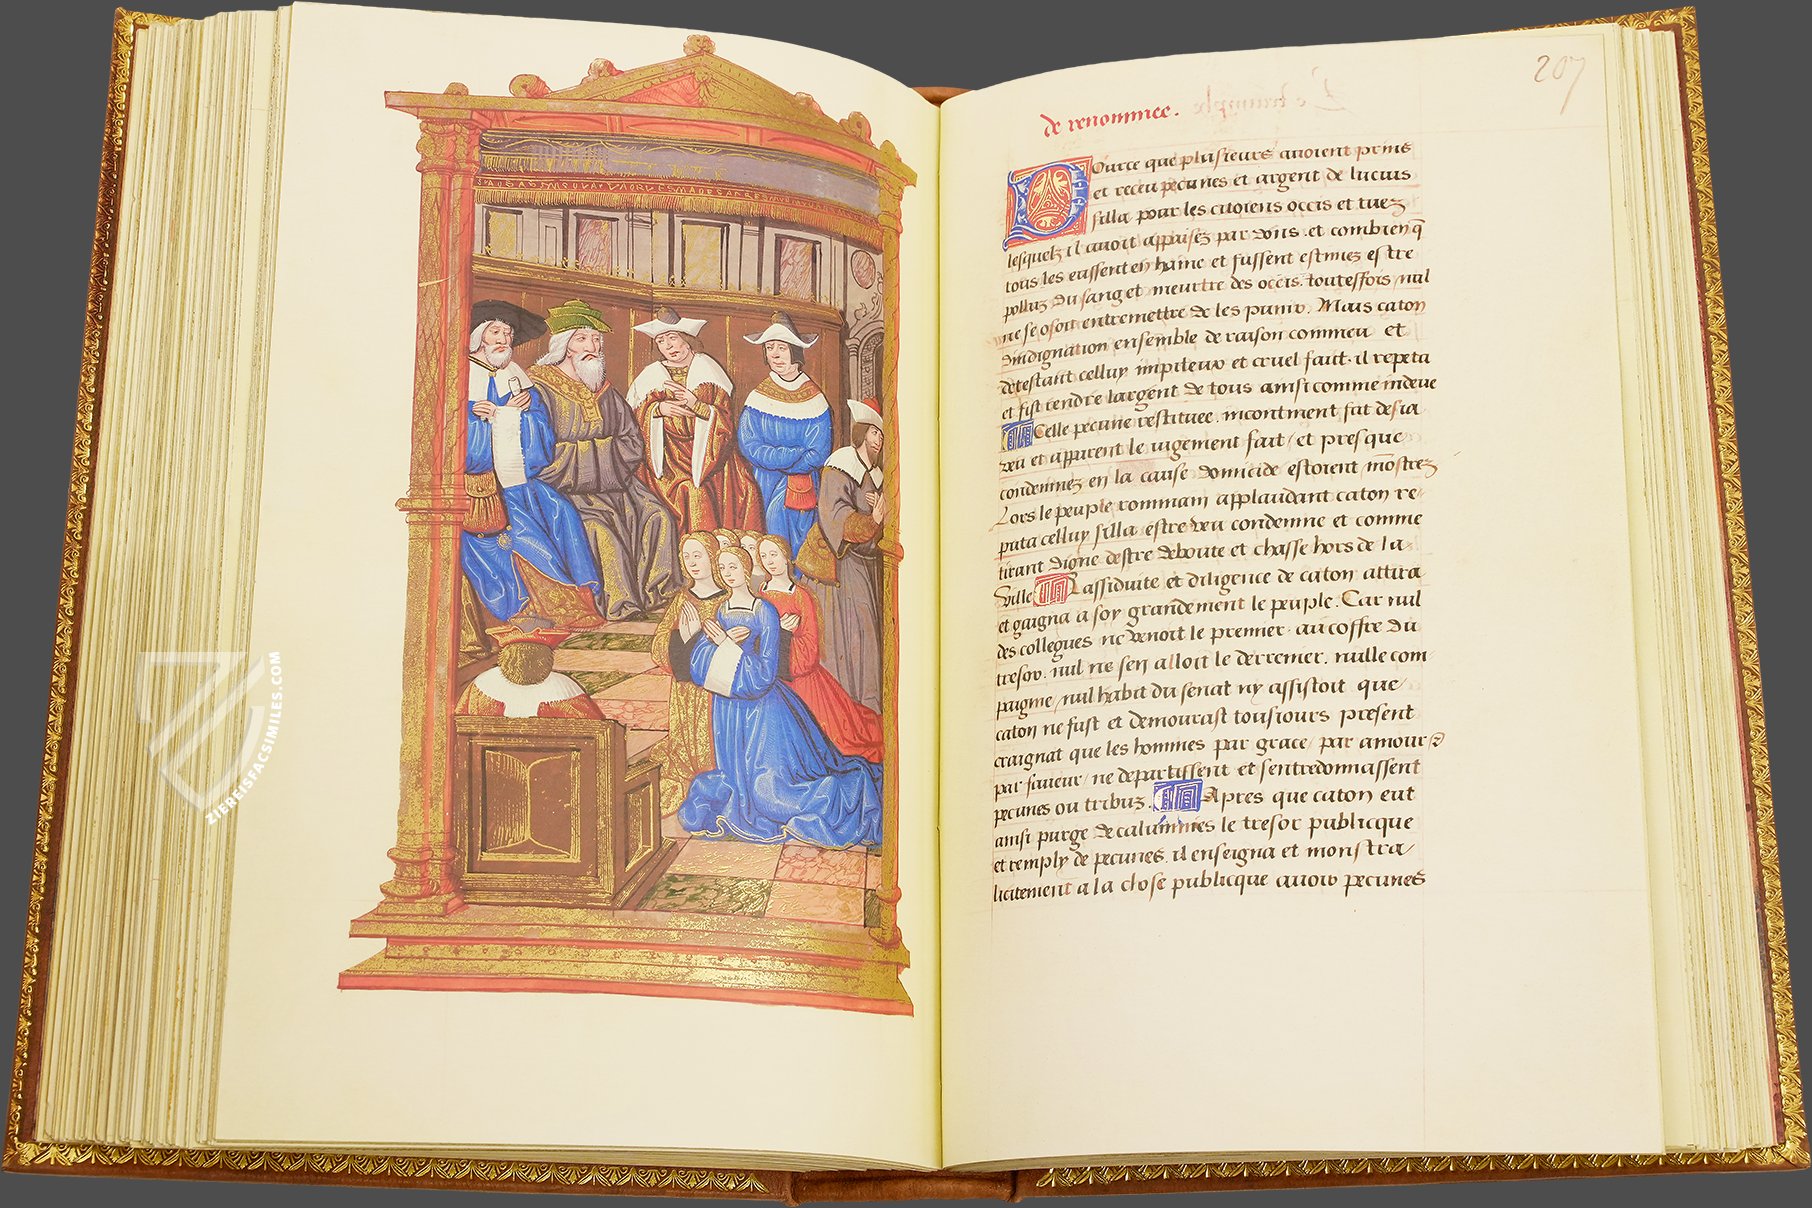 ZIEREISFACSIMILES.COM
207
de renommee.
Ource que plusieurs auoient prins
et receu pecunes et argent de lucius
silla pour les citoiens occis et tuez
lesquelz il auoit appaisez par dons. et combien q̃
tous les eussent en haine et fussent estimez estre
polluz du sang et meurtre des occis. touteffois nul
ne se osoit entremettre de les punir. Mais caton
dindignation ensemble de raison commeu et
detestant celluy impiteux et cruel fait. il repeta
et fist rendre largent de tous ainsi comme indeue
Celle pecune restituee. incontinent fut desia
veu et apparent le iugement fait / et presque
condemnez en la cause domicide estoient mõstrez
Lors le peuple rommain applaudant caton re-
puta celluy silla estre veu condemne et comme
tirant digne destre deboute et chasse hors de la
ville La assiduite et diligence de caton attira
et gaigna a soy grandement le peuple. Car nul
des collegues ne venoit le premier au coffre du
tresor. nul ne sen alloit le derrenier. nulle com-
paignie / nul habit du senat ny assistoit que
caton ne fust et demourast tousiours present
craignat que les hommes par grace / par amour
par faueur / ne departissent et sentredonnassent
pecunes ou tributz. Apres que caton eut
ainsi purge de calumnies le tresor publicque
et remply de pecunes. il enseigna et monstra /
licitement a la chose publicque auoir pecunes